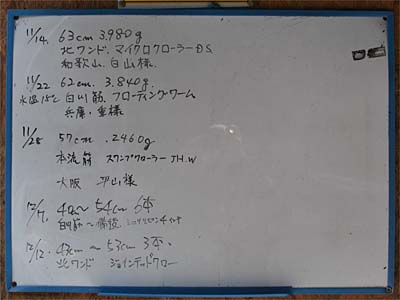 11/14. 63cm 3.980g
北ワンド. マイクロクローラーD.S.
和歌山. 白山様.
11/22 62cm. 3.840g.
水温15℃ 白川筋. フローティングワーム.
兵庫・
11/28 57cm .2460g
本流筋 スワンプクローラー JH.W
大阪 平山様
12/7. 40cm〜54cm 6本
白川筋〜
12/12. 43cm〜53cm 3本.
北ワンド ジョインテッドクロー